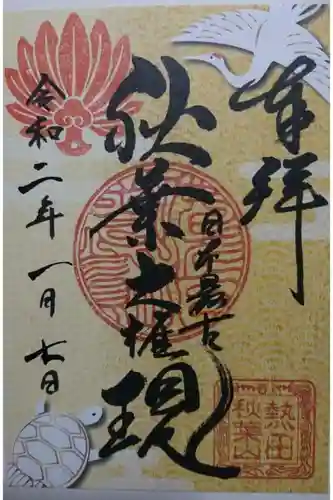 奉拝
日本最古
秋葉大権現
令和二年一月六日
熱田
秋葉山